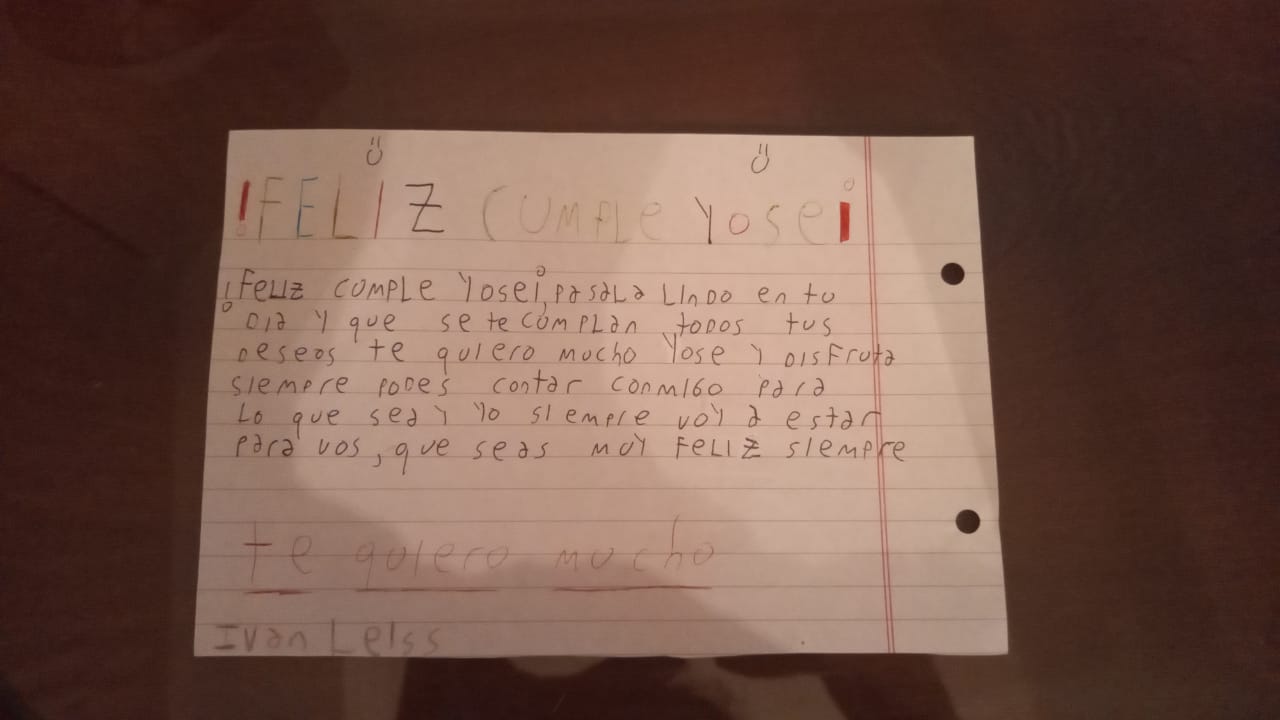 !FELIZ CUMPLE YOSE¡
¡FeLIZ CUMPLE YOSE¡, PASALA LINDO en tu
DIA Y que se te CUMPLAN todos tus
Deseos te quiero mucho Yose Y DISFRUTA
siempre podes contar conmigo para
Lo que sea Y Yo siempre voy a estar
para vos, que seas muy FeLIZ siempre
te quiero mucho
Ivan Leiss